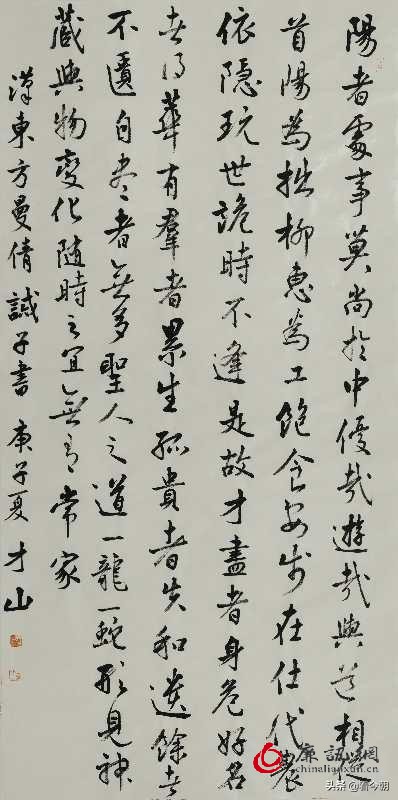 陽者處事莫尚於中優哉遊哉與道相從
首陽為拙柳惠為工飽食安步在仕代農
依隱玩世詭時不逢是故才盡者身危好名
者得華有羣者累生孤貴者失和遺餘者
不匱自盡者無多聖人之道一龍一蛇形見神
藏與物變化隨時之宜無有常家
漢東方曼倩誡子書 庚子夏 才山
廉訊網
chinalianxun.com
头条